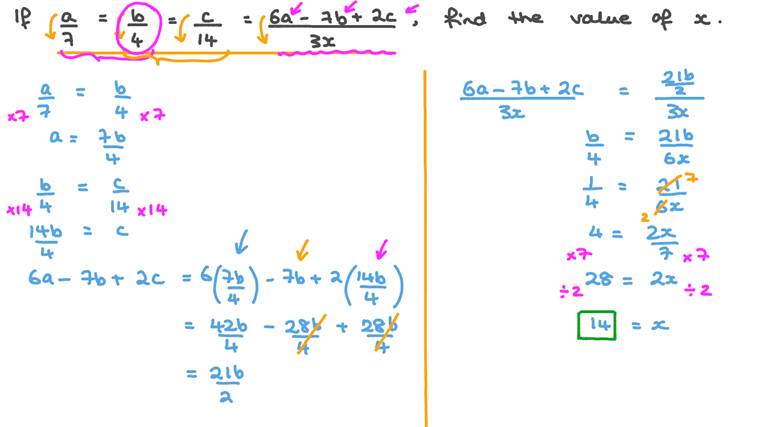 If a/7 = b/4 = c/14 = (6a − 7b + 2c)/3x, find the value of x.
a/7 = b/4
×7 ×7
a = 7b/4
b/4 = c/14
×14 ×14
14b/4 = c
6a − 7b + 2c = 6(7b/4) − 7b + 2(14b/4)
= 42b/4 − 28b/4 + 28b/4
= 21b/2
(6a − 7b + 2c)/3x = (21b/2)/3x
b/4 = 21b/6x
1/4 = 21/6x 7 2
4 = 2x/7
×7 ×7
28 = 2x
÷2 ÷2
14 = x